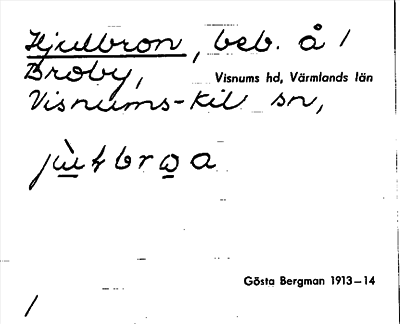 Hjulbron, beb. å 1
Broby, Visnums hd, Värmlands län
Visnums-Kil sn,
Gösta Bergman 1913—14
/